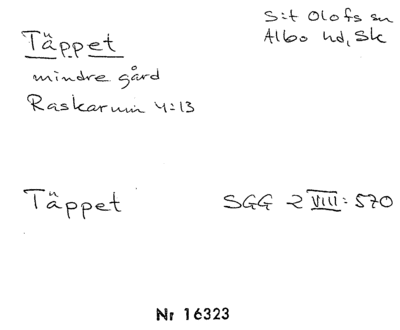 Täppet
S:t Olofs sn
Albo hd, Sk
mindre gård
Raskarum 4:13
Täppet SGG 2 VIII: 570
Nr 16323